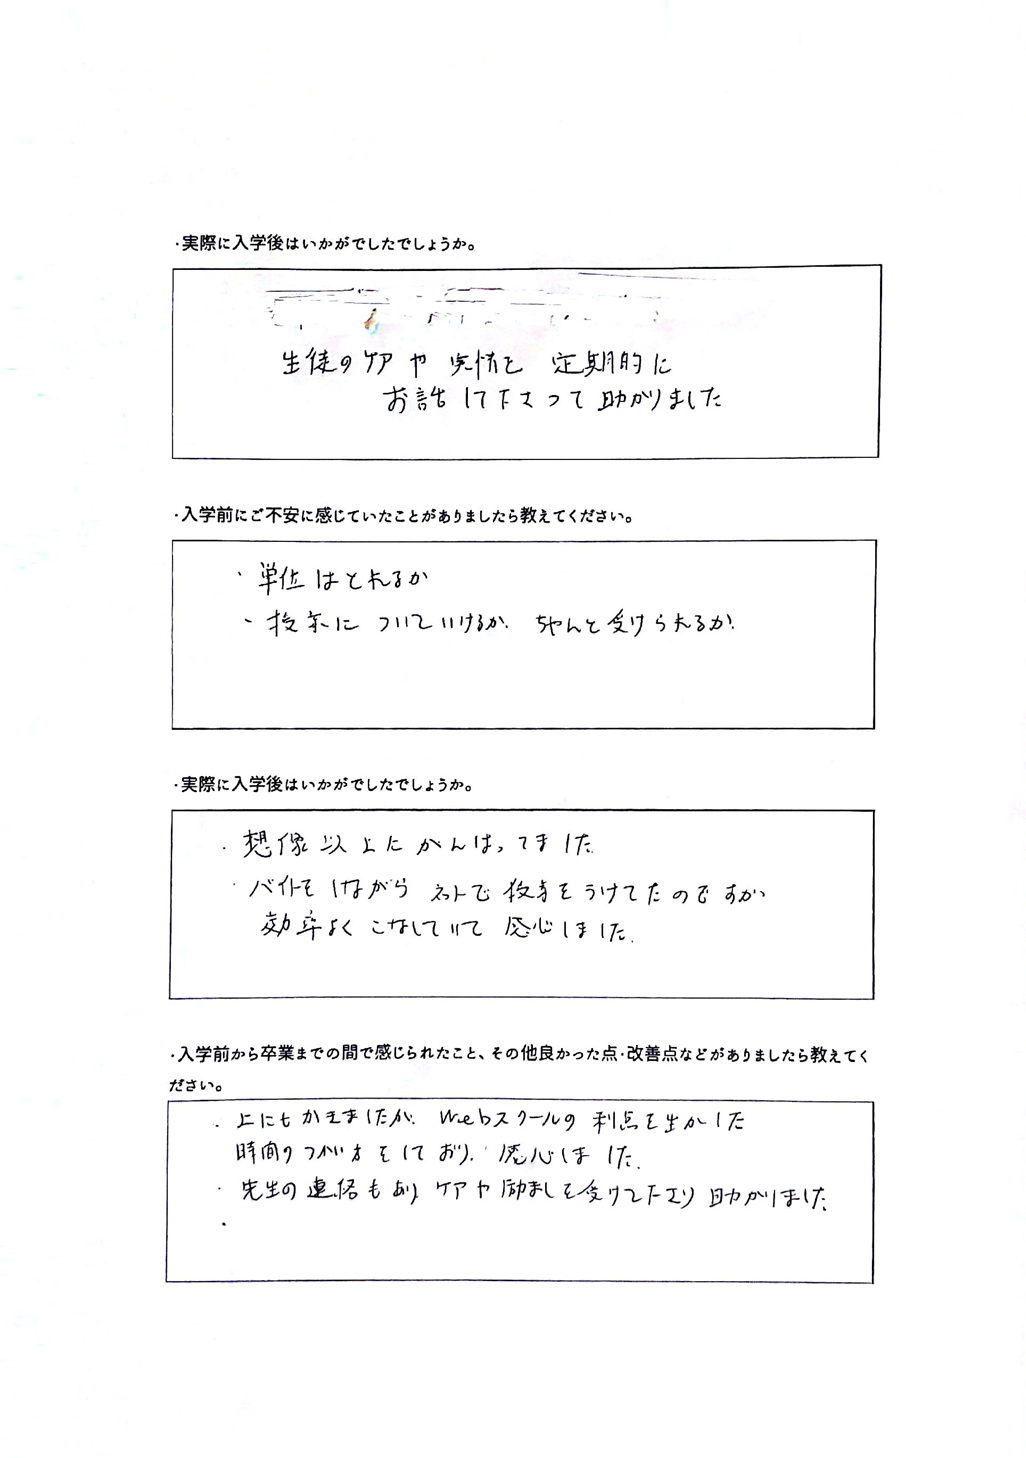 ・実際に入学後はいかがでしたでしょうか。
生徒のケアや実情を 定期的に
お話して下さって助かりました
・入学前にご不安に感じていたことがありましたら教えてください。
・単位はとれるか
・授業についていけるか。ちゃんと受けられるか。
・実際に入学後はいかがでしたでしょうか。
・想像以上にがんばってました
・バイトをしながらネットで授業をうけてたのですが
効率よくこなしていて感心しました。
・入学前から卒業までの間で感じられたこと、その他良かった点・改善点などがありましたら教えてく
ださい。
・上にもかきましたが、Webスクールの利点を生かした
時間のつかい方をしており、感心しました。
・先生の連絡もあり ケアや励ましを受けてたより助かりました。
・